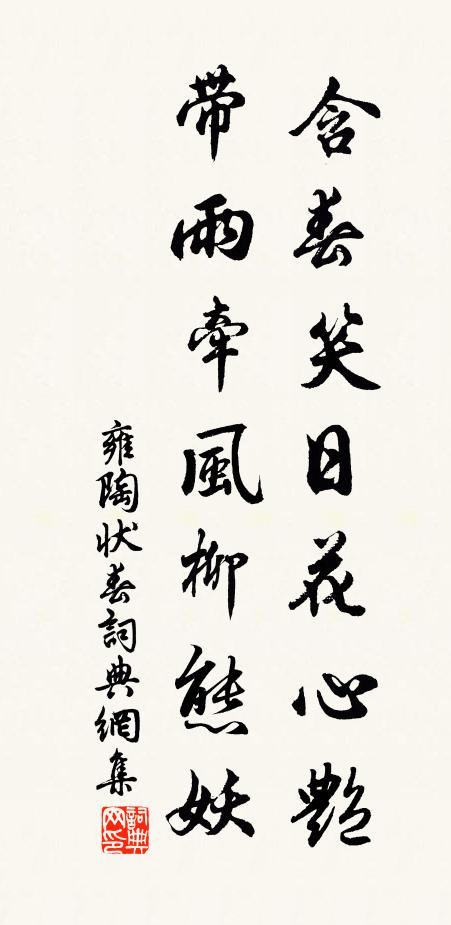 含春笑日花心艷
帶雨牽風柳態妖
雍陶狀春詞典網集
詞典網印